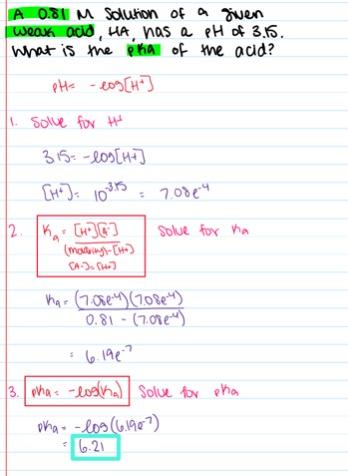 A 0.81 M Solution of a given
weak acid, HA, has a pH of 3.15.
What is the pKa of the acid?
pH= -log[H+]
1. Solve for H+
3.15= -log[H+]
[H+]= 10^-3.15 = 7.08e^-4
2. Ka = [H+][A-] Solve for Ka
(molarity)-[H+]
[A-]=[H+]
Ka= (7.08e^-4)(7.08e^-4)
0.81 - (7.08e^-4)
= 6.19e^-7
3. pKa= -log(Ka) Solve for pKa
pKa= -log(6.19e^-7)
= 6.21